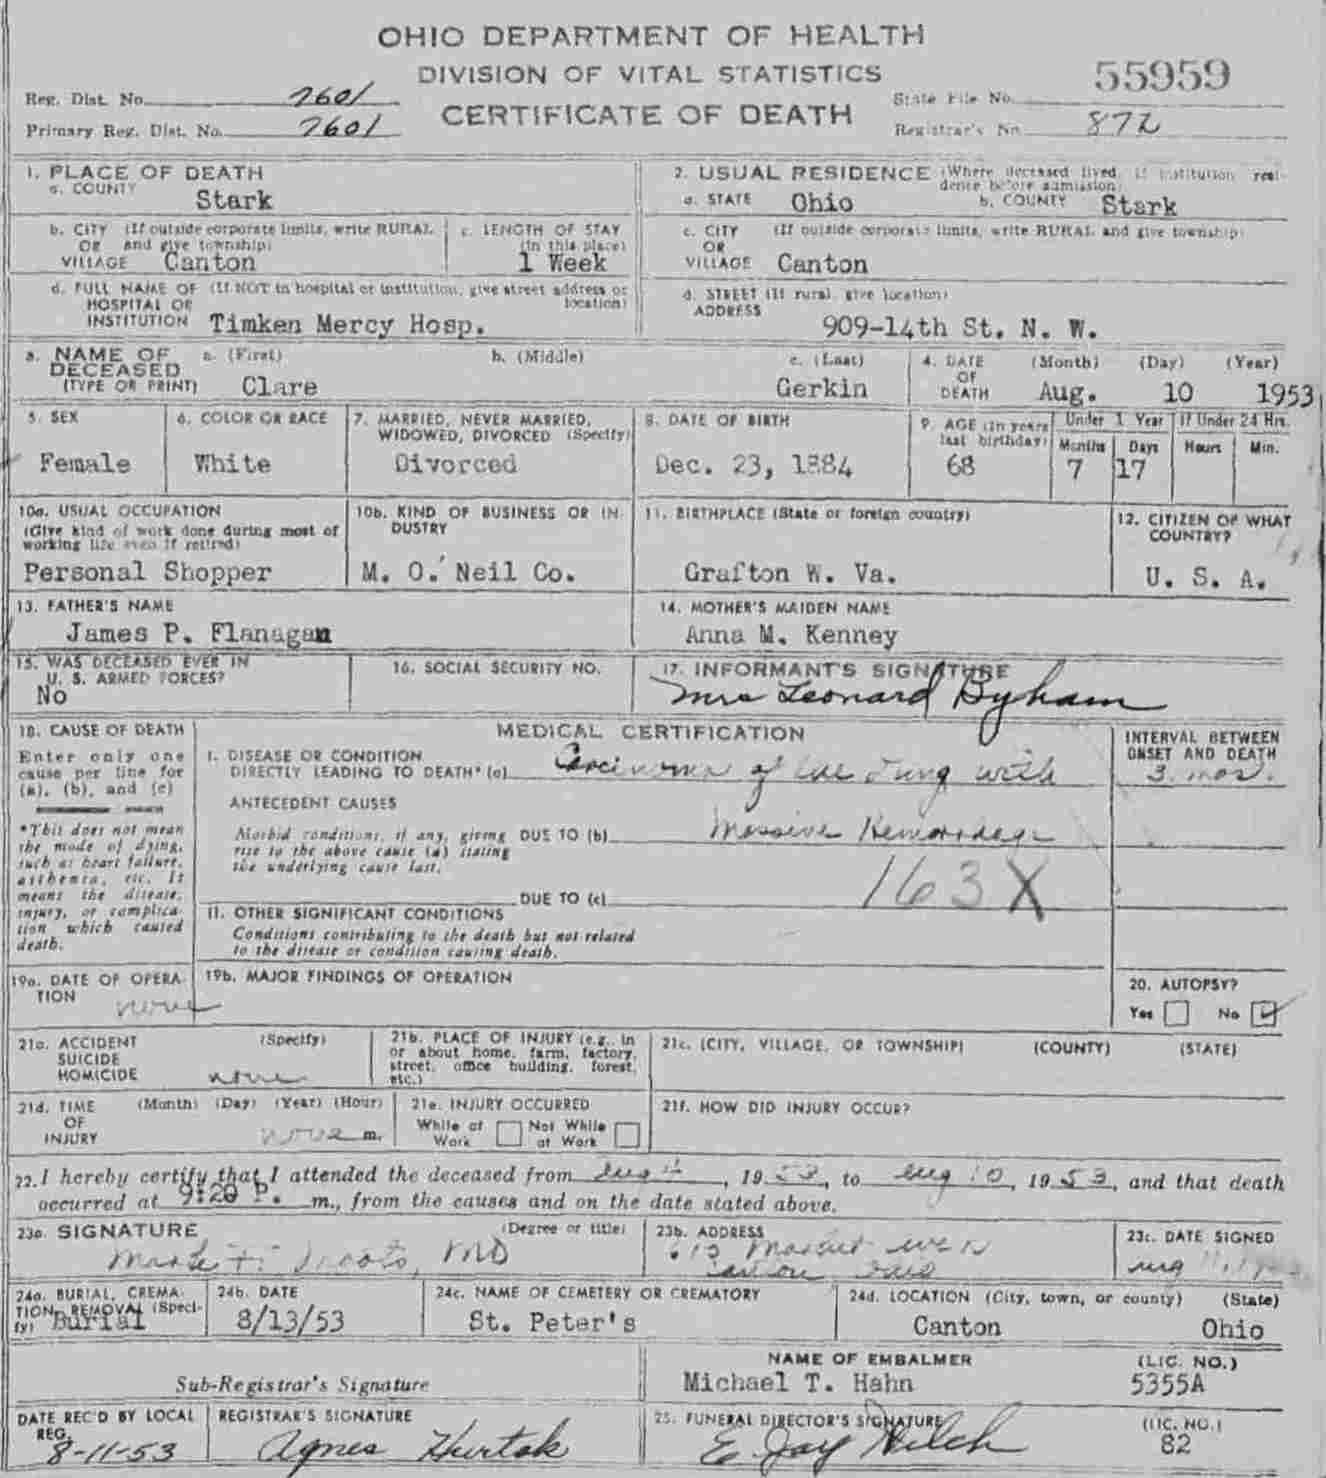 OHIO DEPARTMENT OF HEALTH
DIVISION OF VITAL STATISTICS
CERTIFICATE OF DEATH
Reg. Dist. No. 7601
Primary Reg. Dist. No. 7601
55959
State File No.
Registrar's No. 872
1. PLACE OF DEATH
a. COUNTY Stark
b. CITY (If outside corporate limits, write RURAL
OR and give township)
VILLAGE Canton
c. LENGTH OF STAY
(in this place)
1 Week
d. FULL NAME OF (If NOT in hospital or institution, give street address or
HOSPITAL OR location)
INSTITUTION Timken Mercy Hosp.
2. USUAL RESIDENCE (Where deceased lived. If institution resi-
dence before admission)
a. STATE Ohio b. COUNTY Stark
c. CITY (If outside corporate limits, write RURAL and give township)
OR
VILLAGE Canton
d. STREET (If rural, give location)
ADDRESS
909-14th St. N. W.
3. NAME OF a. (First) b. (Middle) c. (Last)
DECEASED
(TYPE OR PRINT) Clare Gerkin
4. DATE (Month) (Day) (Year)
OF
DEATH Aug. 10 1953
5. SEX
Female
6. COLOR OR RACE
White
7. MARRIED, NEVER MARRIED,
WIDOWED, DIVORCED (Specify)
Divorced
8. DATE OF BIRTH
Dec. 23, 1884
9. AGE (In years
last birthday)
68
Under 1 Year
Months Days
7 17
If Under 24 Hrs.
Hours Min.
10a. USUAL OCCUPATION
(Give kind of work done during most of
working life even if retired)
Personal Shopper
10b. KIND OF BUSINESS OR IN-
DUSTRY
M. O.'Neil Co.
11. BIRTHPLACE (State or foreign country)
Grafton W. Va.
12. CITIZEN OF WHAT
COUNTRY?
U. S. A.
13. FATHER'S NAME
James P. Flanagan
14. MOTHER'S MAIDEN NAME
Anna M. Kenney
15. WAS DECEASED EVER IN
U. S. ARMED FORCES?
No
16. SOCIAL SECURITY NO.
17. INFORMANT'S SIGNATURE
Mrs Leonard Byham
18. CAUSE OF DEATH
Enter only one
cause per line for
(a), (b), and (c)
*This does not mean
the mode of dying,
such as heart failure,
asthenia, etc. It
means the disease,
injury, or complica-
tion which caused
death.
MEDICAL CERTIFICATION
I. DISEASE OR CONDITION
DIRECTLY LEADING TO DEATH* (a) Carcinoma of the Lung with
ANTECEDENT CAUSES
Morbid conditions, if any, giving DUE TO (b) Massive Hemorrhage
rise to the above cause (a) stating
the underlying cause last.
163X
DUE TO (c)
II. OTHER SIGNIFICANT CONDITIONS
Conditions contributing to the death but not related
to the disease or condition causing death.
INTERVAL BETWEEN
ONSET AND DEATH
3 mos.
19a. DATE OF OPERA-
TION none
19b. MAJOR FINDINGS OF OPERATION
20. AUTOPSY?
Yes No
21a. ACCIDENT (Specify)
SUICIDE
HOMICIDE none
21b. PLACE OF INJURY (e.g., in
or about home, farm, factory,
street, office building, forest,
etc.)
21c. (CITY, VILLAGE, OR TOWNSHIP) (COUNTY) (STATE)
21d. TIME (Month) (Day) (Year) (Hour)
OF
INJURY none m.
21e. INJURY OCCURRED
While at Not While
Work at Work
21f. HOW DID INJURY OCCUR?
22. I hereby certify that I attended the deceased from Aug 4, 1953, to Aug 10, 1953, and that death
occurred at 9:20 P. m., from the causes and on the date stated above.
23a. SIGNATURE (Degree or title)
MD
23b. ADDRESS
Market Ave N
Canton Ohio
23c. DATE SIGNED
Aug 11,
24a. BURIAL, CREMA-
TION, REMOVAL (Speci-
fy) Burial
24b. DATE
8/13/53
24c. NAME OF CEMETERY OR CREMATORY
St. Peter's
24d. LOCATION (City, town, or county) (State)
Canton Ohio
Sub-Registrar's Signature
NAME OF EMBALMER (LIC. NO.)
Michael T. Hahn 5355A
DATE REC'D BY LOCAL
REG.
8-11-53
REGISTRAR'S SIGNATURE
Agnes Hurtok
25. FUNERAL DIRECTOR'S SIGNATURE (LIC. NO.)
E. Jay Welch 82